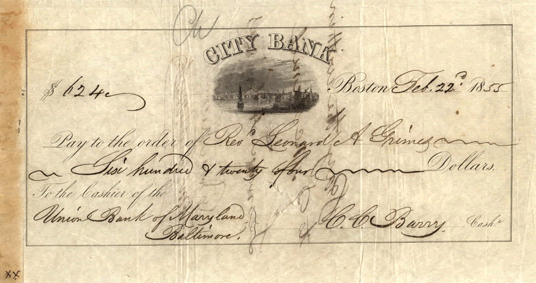 Ch
CITY BANK
$ 624 Boston Feb. 22d 1855
Pay to the order of Revd Leonard A Grimes
Six hundred & twenty four Dollars.
To the Cashier of the
Union Bank of Maryland
Baltimore. C. C. Barry Cashr
xx